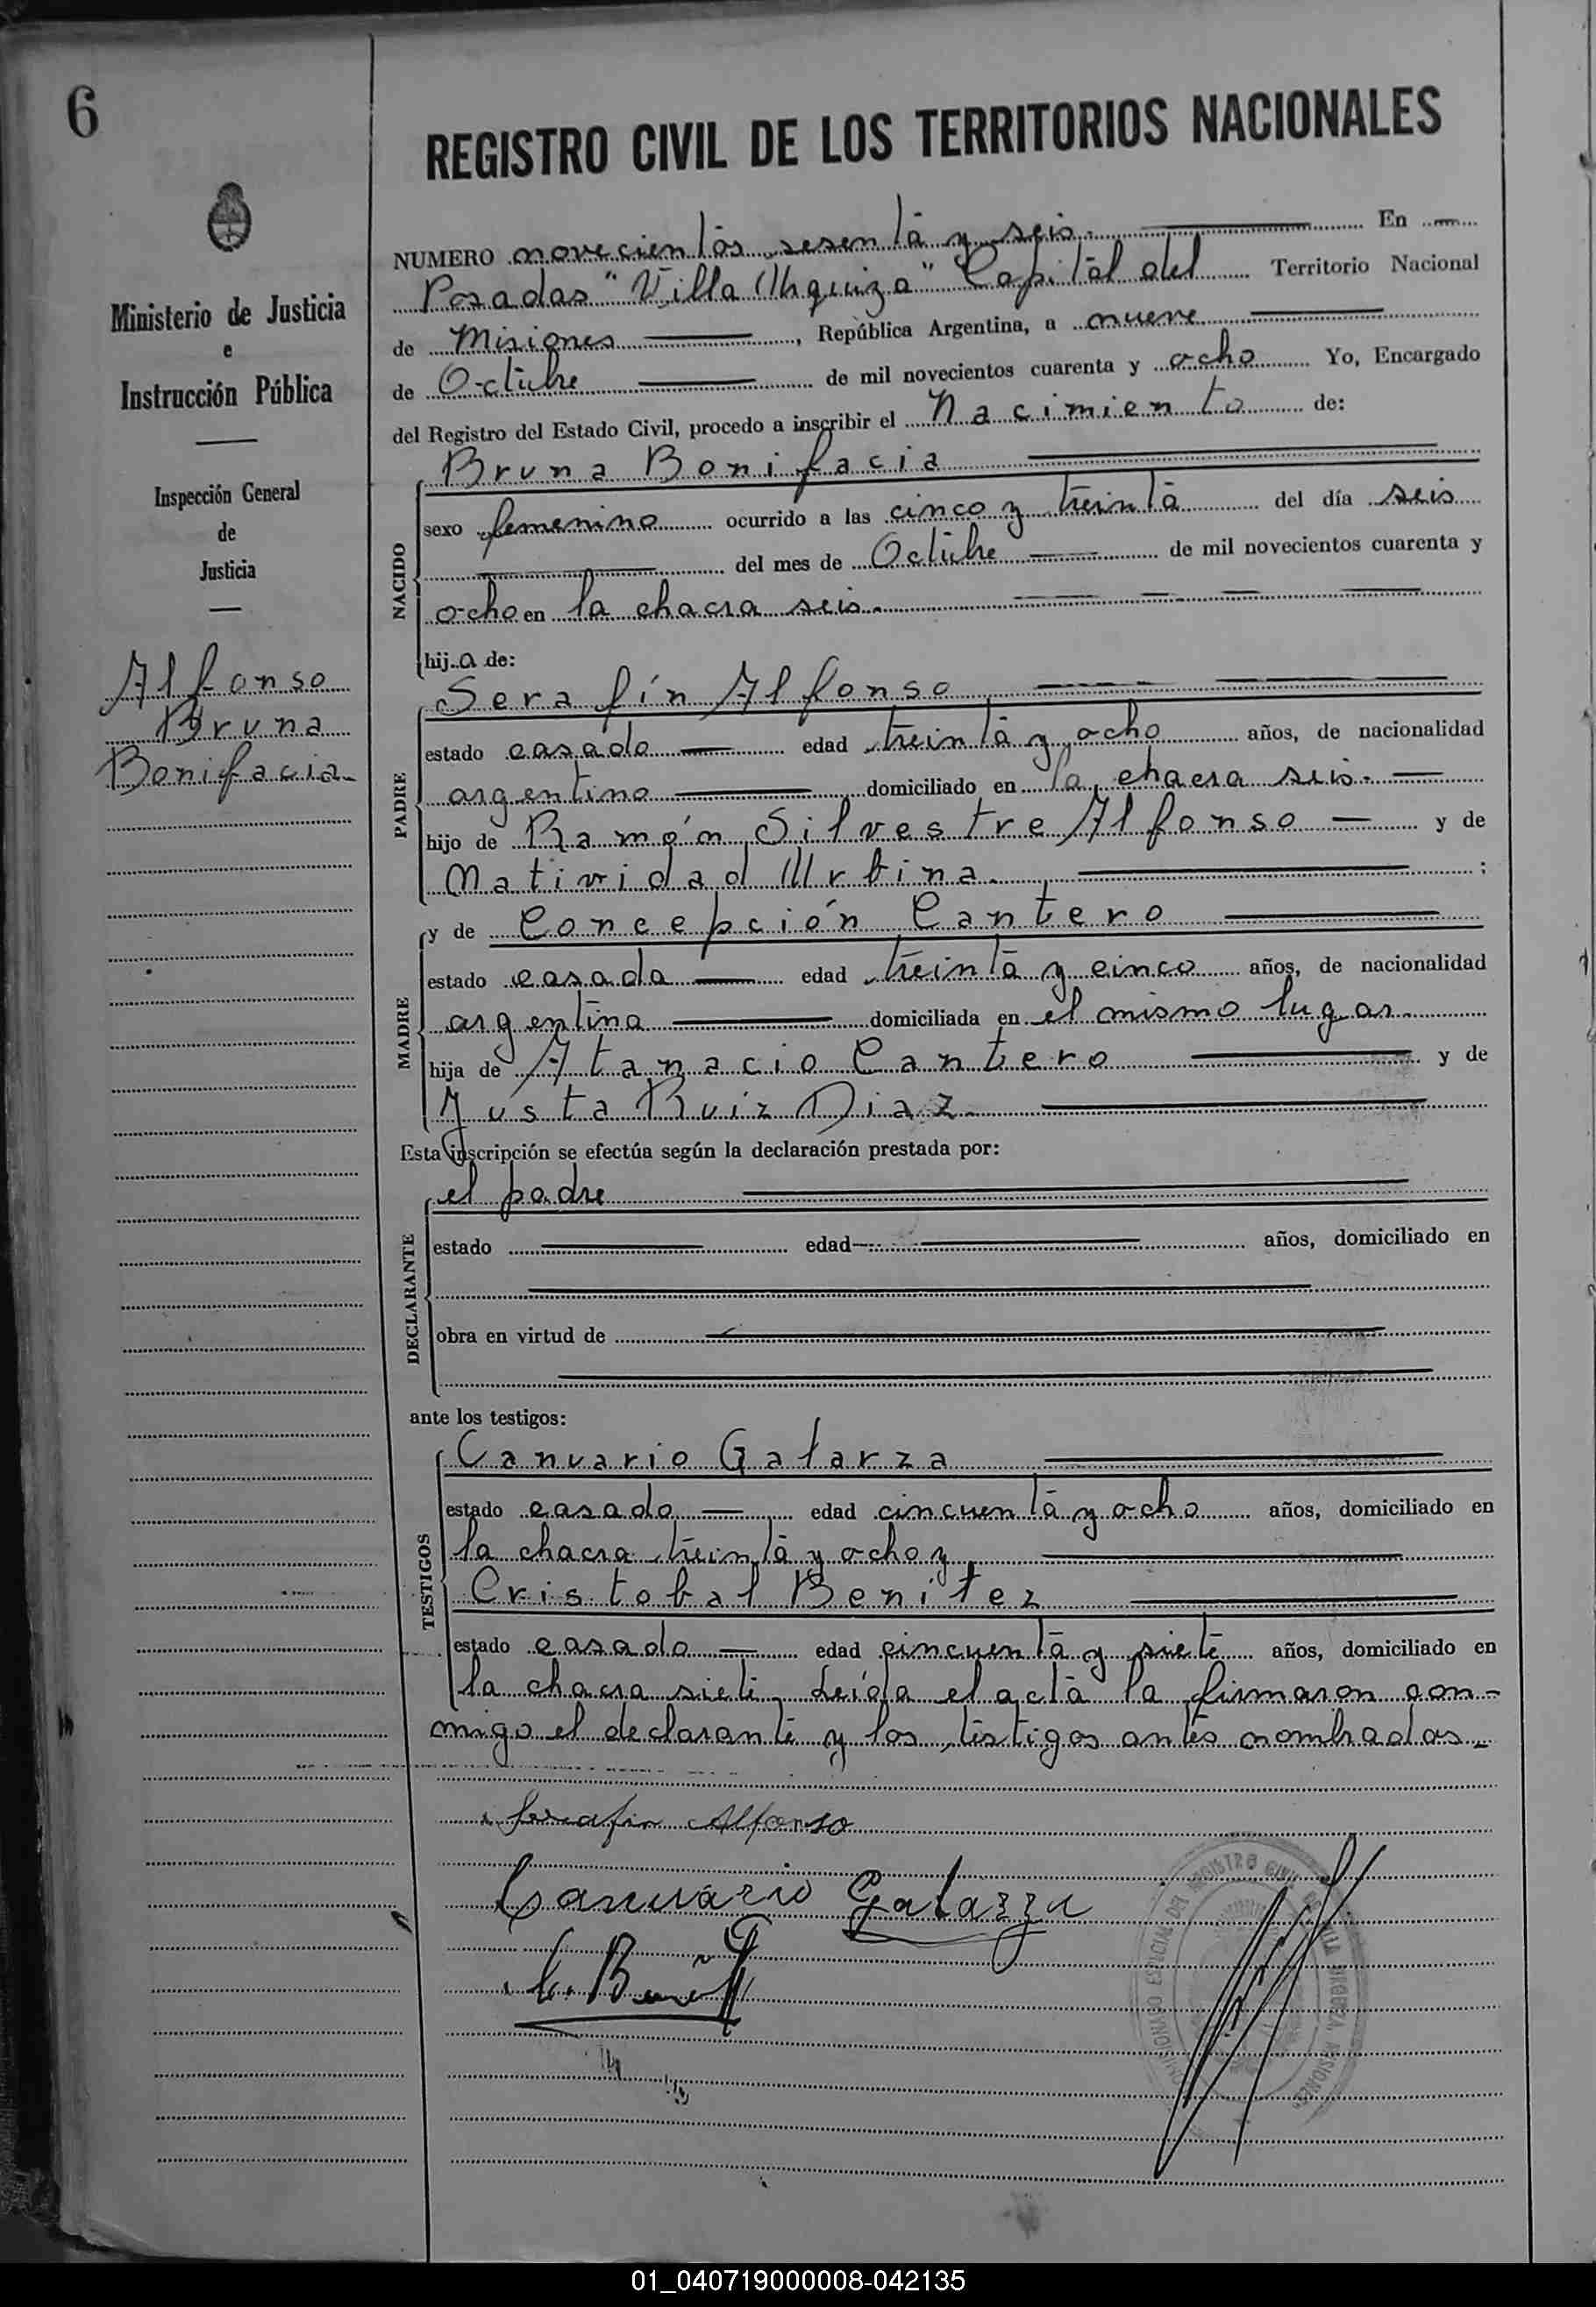 6
REGISTRO CIVIL DE LOS TERRITORIOS NACIONALES
Ministerio de Justicia
e
Instrucción Pública
Inspección General
de
Justicia
Alfonso
Bruna
Bonifacia
NUMERO novecientos sesenta y seis. En
Posadas "Villa Urquiza" Capital del Territorio Nacional
de Misiones, República Argentina, a nueve
de Octubre de mil novecientos cuarenta y ocho Yo, Encargado
del Registro del Estado Civil, procedo a inscribir el Nacimiento de:
Bruna Bonifacia
NACIDO
sexo femenino ocurrido a las cinco y treinta del día seis
del mes de Octubre de mil novecientos cuarenta y
ocho en la chacra seis.
hija de:
Serafín Alfonso
PADRE
estado casado edad treinta y ocho años, de nacionalidad
argentino domiciliado en la chacra seis.
hijo de Ramón Silvestre Alfonso y de
Natividad Urbina. ;
y de Concepción Cantero
MADRE
estado casada edad treinta y cinco años, de nacionalidad
argentina domiciliada en el mismo lugar.
hija de Atanacio Cantero y de
Justa Ruiz Diaz.
Esta inscripción se efectúa según la declaración prestada por:
el padre
DECLARANTE
estado edad años, domiciliado en
obra en virtud de
ante los testigos:
Canuario Galarza
TESTIGOS
estado casado edad cincuenta y ocho años, domiciliado en
la chacra treinta y ocho y
Cristobal Benitez
estado casado edad cincuenta y siete años, domiciliado en
la chacra siete. Leída el acta la firmaron con-
migo el declarante y los testigos antes nombrados.
Serafin Alfonso
Canuario Galarza
C. Benitez
REGISTRO CIVIL VILLA URQUIZA, MISIONES
01_040719000008-042135